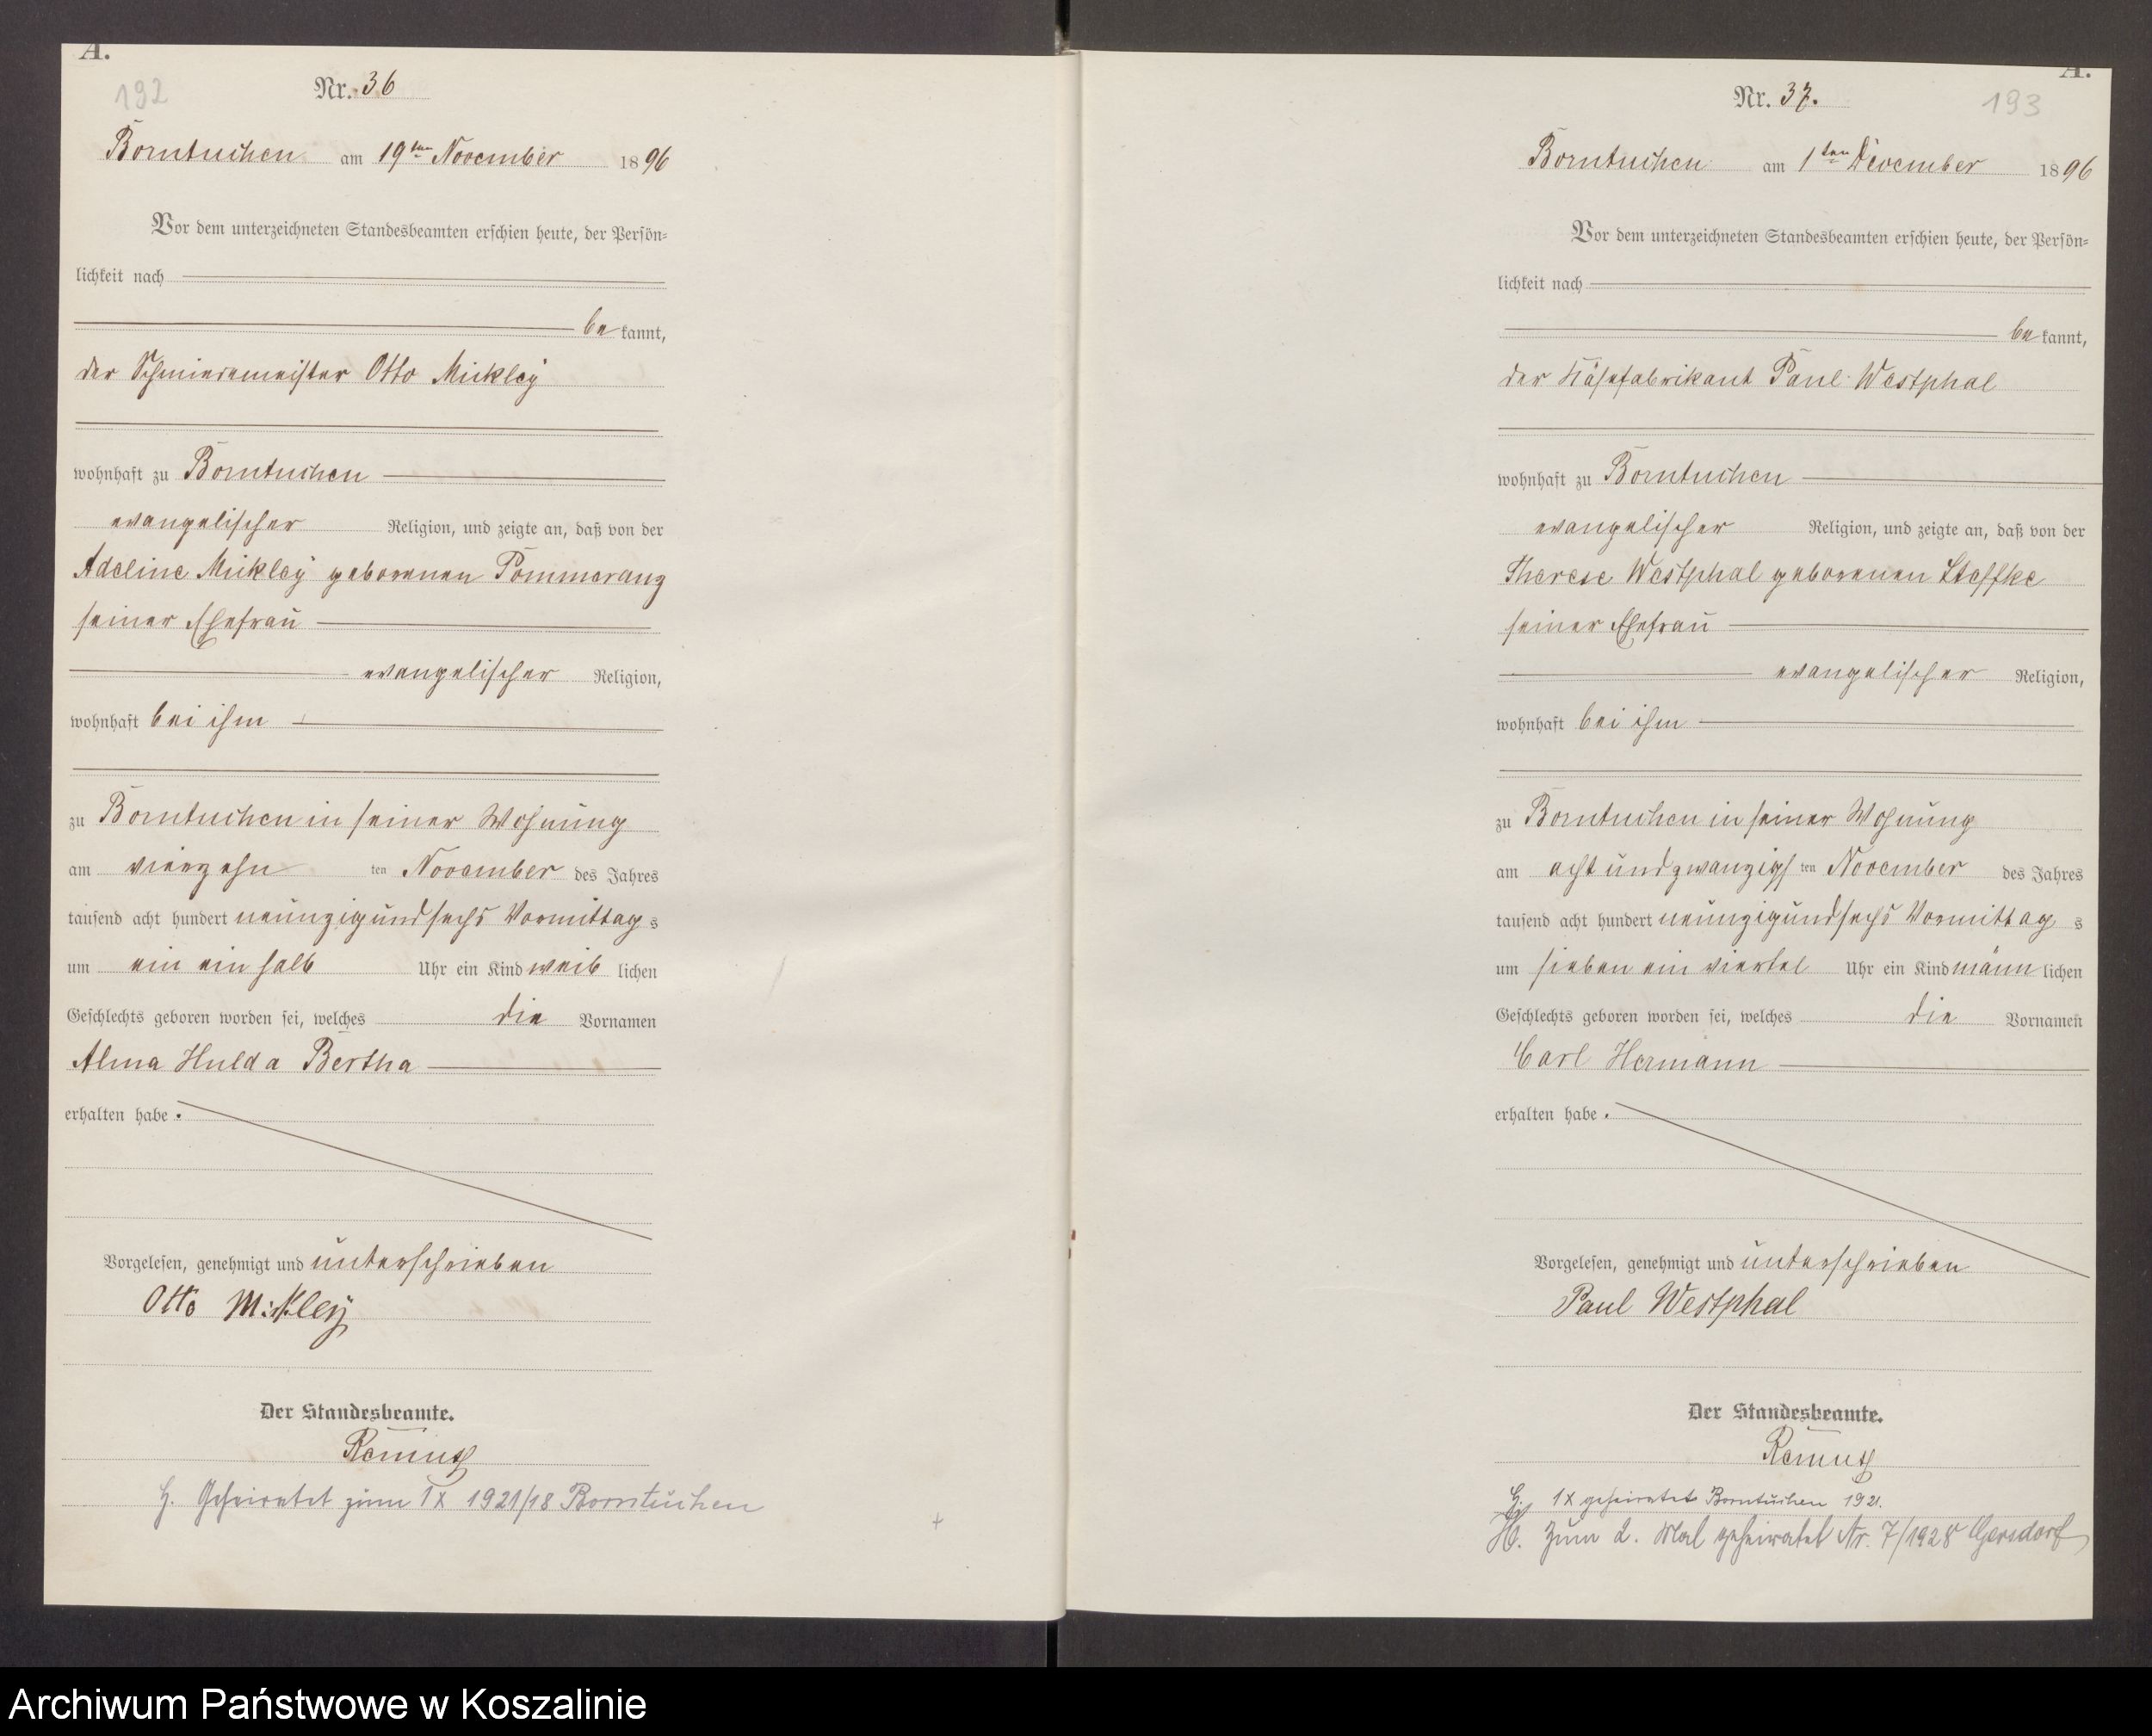 A.
192
Nr. 36
Borntuchen am 19ten November 1896
Vor dem unterzeichneten Standesbeamten erschien heute, der Persön-
lichkeit nach
be kannt,
der Schmiedemeister Otto Mickley
wohnhaft zu Borntuchen
evangelischer Religion, und zeigte an, daß von der
Adeline Mickley geborenen Pommerang
seiner Ehefrau
evangelischer Religion,
wohnhaft bei ihm
zu Borntuchen in seiner Wohnung
am vierzehn ten November des Jahres
tausend acht hundert neunzig und sechs Vormittag s
um ein ein halb Uhr ein Kind weib lichen
Geschlechts geboren worden sei, welches die Vornamen
Alma Hulda Bertha
erhalten habe.
Vorgelesen, genehmigt und unterschrieben
Otto Mickley
Der Standesbeamte.
Remus
H. Geheiratet zum 1x 1921/18 Borntuchen
A.
193
Nr. 37.
Borntuchen am 1ten December 1896
Vor dem unterzeichneten Standesbeamten erschien heute, der Persön-
lichkeit nach
be kannt,
der Käsefabrikant Paul Westphal
wohnhaft zu Borntuchen
evangelischer Religion, und zeigte an, daß von der
Therese Westphal geborenen Steffke
seiner Ehefrau
evangelischer Religion,
wohnhaft bei ihm
zu Borntuchen in seiner Wohnung
am acht und zwanzigs ten November des Jahres
tausend acht hundert neunzig und sechs Vormittag s
um sieben ein viertel Uhr ein Kind männ lichen
Geschlechts geboren worden sei, welches die Vornamen
Carl Hermann
erhalten habe.
Vorgelesen, genehmigt und unterschrieben
Paul Westphal
Der Standesbeamte.
Remus
H. 1x geheiratet Borntuchen 1921.
H. Zum 2. Mal geheiratet Nr. 7/1928 Gersdorf
Archiwum Państwowe w Koszalinie